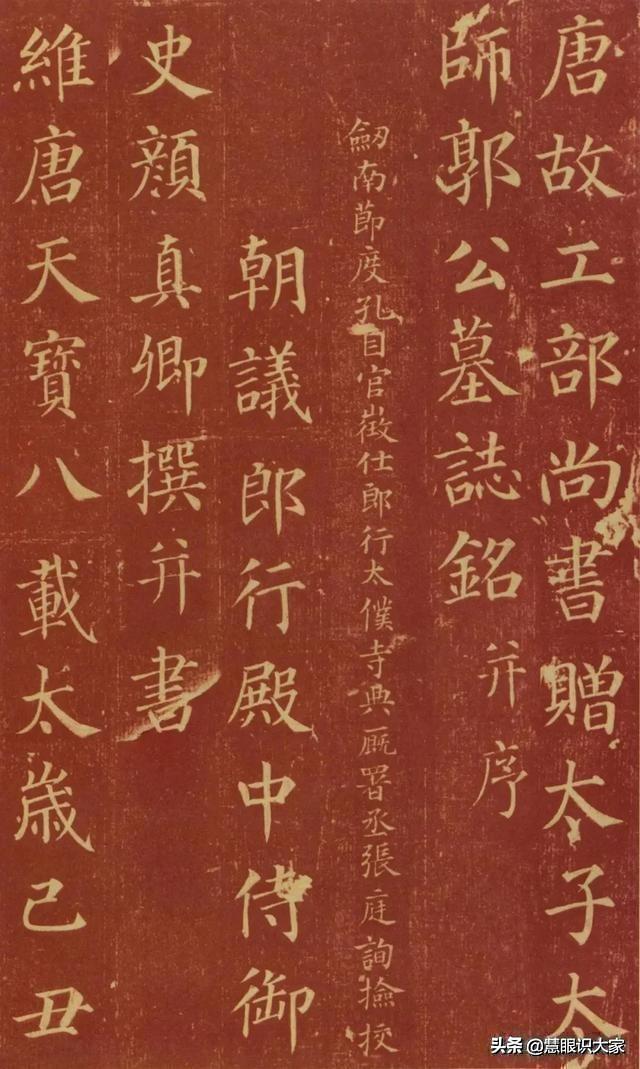 唐故工部尚書贈太子太
師郭公墓誌銘并序
劒南節度孔目官徵仕郎行太僕寺典廐署丞張庭詢撿挍
朝議郎行殿中侍御
史顏真卿撰并書
維唐天寶八載太歲己丑
头条@慧眼识大家